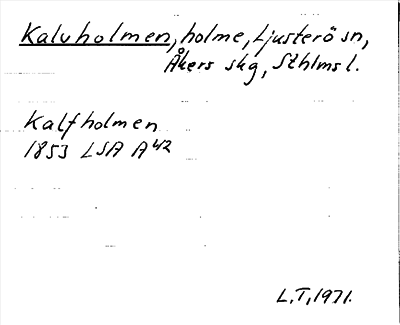 Kalvholmen, holme, Ljusterö sn,
Åkers skg, Sthlms l.
Kalfholmen
1853 LSA A42
L.T, 1971.